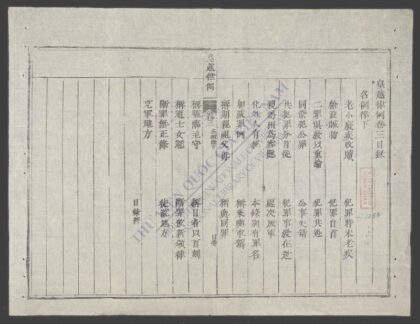 皇越律例卷三目錄
名例律下
老小廢疾收贖 犯罪時未老疾
給没贓物 犯罪自首
二罪俱發以重論 犯罪共逃
同僚犯公罪 公事失錯
共犯罪分首從 犯罪事發在逃
親屬相爲容隱 處決叛軍
化外人有犯 本條別有罪名
加減罪例 稱乘輿車駕
稱期親祖父母 稱與同罪
皇越律例
稱監臨主守 稱日者以百刻
稱道士女冠 斷罪依新頒律
斷罪無正條 徒流地方
充軍地方
目錄終
THƯ VIỆN QUỐC GIA VIỆT NAM
NATIONAL LIBRARY OF VIETNAM